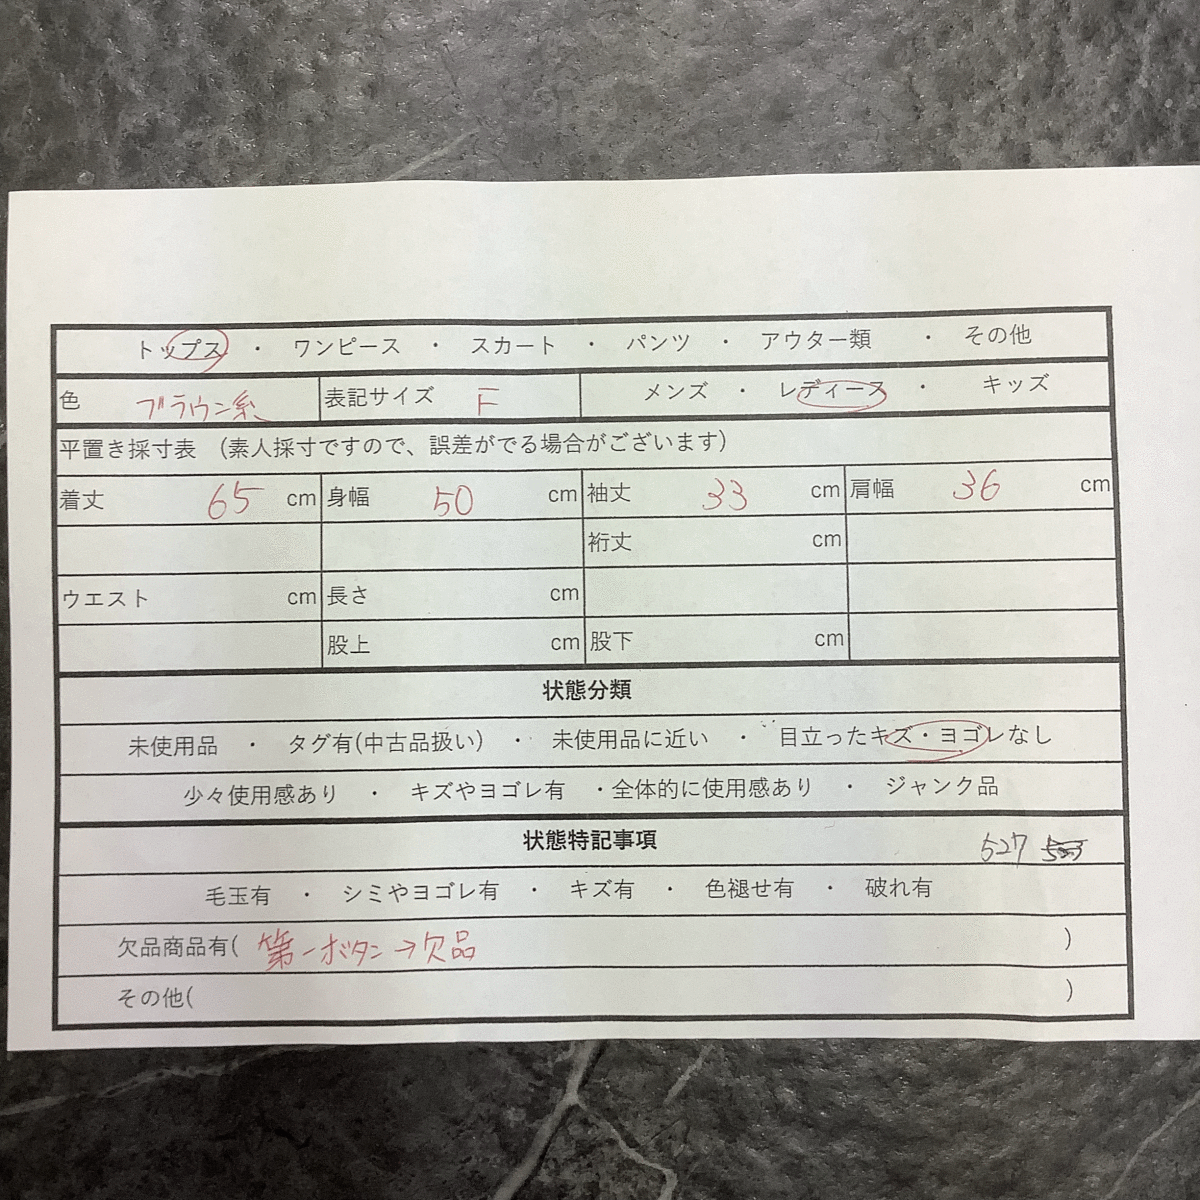 トップス ・ ワンピース ・ スカート ・ パンツ ・ アウター類 ・ その他
色 ブラウン系 表記サイズ F メンズ ・ レディース ・ キッズ
平置き採寸表 (素人採寸ですので、誤差がでる場合がございます)
着丈 65 cm 身幅 50 cm 袖丈 33 cm 肩幅 36 cm
裄丈 cm
ウエスト cm 長さ cm
股上 cm 股下 cm
状態分類
未使用品 ・ タグ有(中古品扱い) ・ 未使用品に近い ・ 目立ったキズ・ヨゴレなし
少々使用感あり ・ キズやヨゴレ有 ・全体的に使用感あり ・ ジャンク品
状態特記事項 527
毛玉有 ・ シミやヨゴレ有 ・ キズ有 ・ 色褪せ有 ・ 破れ有
欠品商品有( 第一ボタン→欠品 )
その他( )